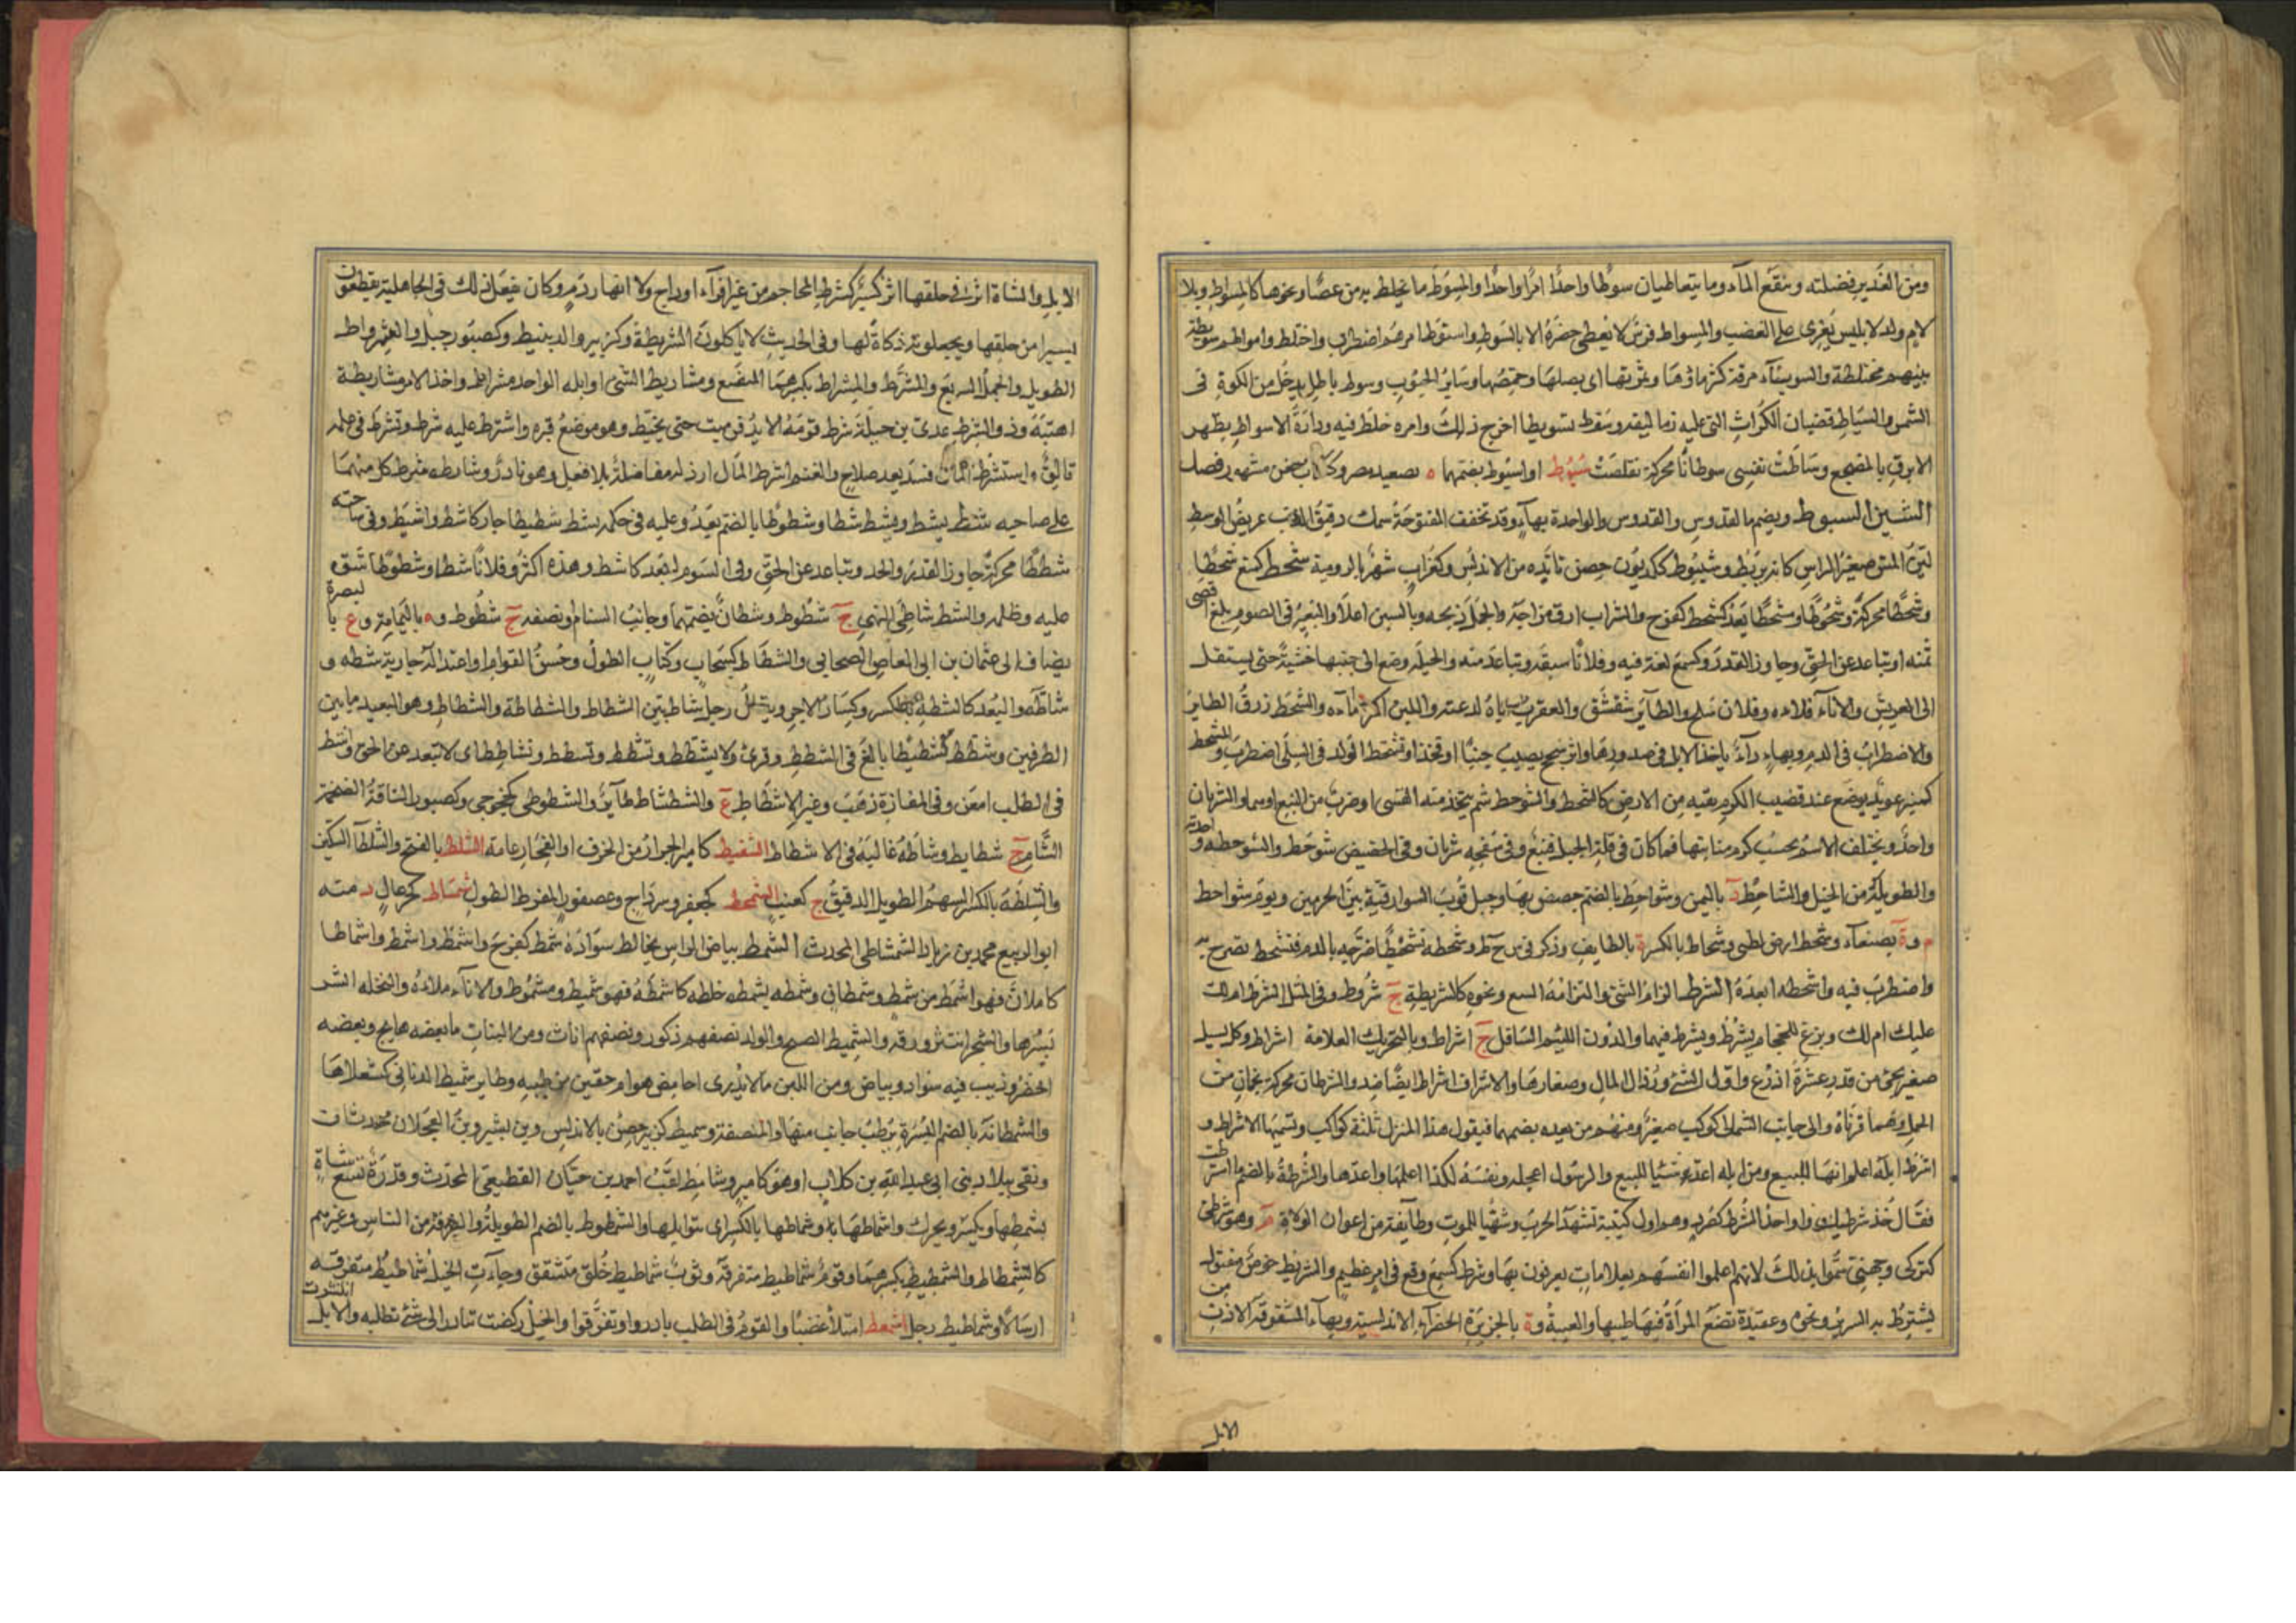 ومن الغدير فضلته ومنقع المآء وما يتعاطيان سوطا واحدا امرا واحدا والمسوط ما يخلط به من عصا ونحوها كالمسواط وبلا
لام ولد لابليس يغرى على الغضب والمسواط فرس لا يعطى حضره الا بالسوط واستوط امرهم اضطرب واختلط واموالهم سويطة
بينهم مختلطة والسويطآء مرقة كثر مآؤها وثمرتها اى بصلها وحمصها وسائر الحبوب وسوط باطل يدخل من الكوة فى
الشمس والسياط قضبان الكراث التى عليه زماليقه وسوط تسويطا اخرج ذلك وامره خلط فيه ودارة الاسواط بظهر
الابرق بالمضجع وساطت نفسى سوطانا محركة تقلصت سيوط او اسيوط بضمهما ه بصعيد مصر
الشين السبوط ويضم كالقدوس والقدوس والواحدة بهآء وقد تخفف المفتوحة سمك دقيق الذنب عريض الوسط
لين المس صغير الراس كانه بربط وشيبوط ككديون حصن تائده من الاندلس وكغراب شهر بالرومية شحط كمنع شحطا
وشحطا محركة وشحوطا ومشحطا بعد كشحط كفرح والشراب ارق مزاجه والجمل ذبحه وبالسين اعلا والبعير فى الصوم بلغ اقصى
ثمنه او تباعد عن الحق وجاوز القدر وكسمع لغة فيه وفلانا سبقه وتباعد منه والحبلة وضع الى جنبها خشبة حتى يستقل
الى العريش والانآء فلاءه وفلان سلح والطآئر شقشق والعقرب اياه لدغته واللبن اكثر مآءه والشحط زرق الطائر
والاضطراب فى الدم وبهآء دآء ياخذ الابل فى صدورها واثر سحج يصيب جنبا او فخذا وتشحط الولد فى السلى اضطرب والمشحط
كمنبر عويد يوضع عند قضيب الكرم يقيه من الارض كالشحط والشوحط شجر يتخذ منه القسى او ضرب من النبع او هما والشريان
واحد ويختلف الاسم بحسب كرم منابتها فما كان فى قلة الجبل فنبع وفى سفحه شريان وفى الحضيض شوحط والشوحطة واحدته
والطويلة من الخيل والشاحط د باليمن وشواحط بالضم حصن بها وجبل قرب السوارقية بين الحرمين ويوم شواحط
م وة بصنعآء وشحط ارض لطيئ وشحاط بالكسر ة بالطايف وذكر فى س ح ط وشحطه تشحيطا ضرجه بالدم فتشحط تضرج به
واضطرب فيه واشحطه ابعده الشرط الزام الشئ والتزامه فى البيع ونحوه كالشريطة ج شروط وفى المثل الشرط املك
عليك ام لك وبزغ الحجام يشرط ويشرط فيهما والدون اللئيم السافل ج اشراط وبالتحريك العلامة ج اشراط وكل مسيل
صغير يجئ من قدر عشرة اذرع واول الشئ ورذال المال وصغارها والاشراف اشراط ايضا ضد والشرطان محركة نجمان من
الحمل وهما قرناه والى جانب الشمالى كوكب صغير ومنهم من يعده بضمهما فيقول هذا المنزل ثلثة كواكب وتسميها الاشراط و
اشرط ابله اعلم انها للبيع ومن ابله اعد شيئا للبيع والرسول اعجله ونفسه لكذا اعلمها واعدها والشرطة بالضم ما اشترطت
فقال خذ شرطتك وواحد الشرط كصرد وهو اول كتيبة تشهد الحرب وتتهيا للموت وطآئفة من اعوان الولاة م وهو شرطى
كتركى وجهنى سموا بذلك لانهم اعلموا انفسهم بعلامات يعرفون بها وشرط كسمع وقع فى امر عظيم والشريط خوص مفتول
يشترط به السرير ونحوه وعتيدة تضع المرأة فيها طيبها والعيبة وة بالجزيرة الخضرآء الاندلسية وبهآء المشقوقة الاذن من
الابل
الابل والشاة اثر فى حلقها اثر يسير كشرط المحاجم من غير افرآء اوداج ولا انهار دم وكان يفعل ذلك فى الجاهلية يقطعون
يسيرا من حلقها ويجعلونه ذكاة لها وفى الحديث لا تاكلوا الشريطة وكزبير والد نبيط وكصبور جبل والشرواط
الطويل والجمل السريع والمشرط والمشراط بكسرهما المبضع ومشاريط الشئ اوايله الواحد مشراط واخذ للامر مشاريطه
اهبته وذو الشرط عدى بن جبلة شرط قومه الا يدفن ميت حتى يخط هو موضع قبره واشترط عليه شرط وتشرط فى عمله
تانق واستشرط المال فسد بعد صلاح والغنم اشرط المال ارذله مفاضلة بلا فعل وهو نادر وشارطه شرط كل منهما
على صاحبه شط يشط ويشط شطا وشطوطا بالضم بعد وعليه فى حكمه يشط شطيطا جار كاشط واشتط وفى سلعته
شططا محركة جاوز القدر والحد وتباعد عن الحق وفى السوم ابعد كاشط وهذه اكثر وفلانا شطا وشطوطا شق
عليه وظلمه والشط شاطئ النهر ج شطوط وشطان بضمهما وجانب السنام او نصفه ج شطوط وه باليمامة وع بالبصرة
يضاف الى عثمان بن ابى العاص الصحابى والشطاط كسحاب وكتاب الطول وحسن القوام او اعتداله جارية شطة و
شاطة والبعد كالشطة بالكسر وكسار الاجر ويقال رجل شاط بين الشطاط والشطاطة والشطاط وهو البعيد ما بين
الطرفين وشطط تشطيطا بالغ فى الشطط وقرئ ولا تشطط وتشطط وتشطط وتشاطط اى لا تبعد عن الحق واشط
فى الطلب امعن وفى المفازة ذهب وغير الاشطاط ع والشطشاط طآئر والشطوطى كخجوجى وكصبور الناقة الضخمة
السنام ج شطايط وشاطه غالبه فى الاشطاط الشقيط كامير الجرار من الخزف او الفخار عامة الشلط بالفتح والشلطآ السكين
والشلطة بالكسر السهم الطويل الدقيق ج كعنب الشمحط كجعفر وسرداج وعصفور المفرط الطول شمشاط كخزعال د منه
ابو الربيع محمد بن زياد الشمشاطى المحدث الشمط بياض الراس يخالط سواده شمط كفرح واشمط واشمط واشماط
كاطمان فهو اشمط من شمط وشمطان وشمطه يشمطه خلطه كاشمطه فهو شميط ومشموط والانآء ملاه والنخلة انتثر
بسرها والشجر انتثر ورقه والشميط الصبح والولد نصفهم ذكور ونصفهم اناث ومن النبات ما بعضه هايج وبعضه
اخضر وذئب فيه سواد وبياض ومن اللبن ما لا يدرى احامض هو ام حقين من طيبه وطاير شميط الذنابى كشعلاها
والشمطانة بالضم البسرة يرطب جانب منها والمنصفة وشميط كزبير حصن بالاندلس وبن بشير وبن العجلان محدثان
ونقى ببلاد بنى ابى عبد الله بن كلاب او هو كامير وشامط لقب احمد بن حيان القطيعى المحدث وقدر تسع شاة
بشمطها ويكسر ويحرك واشماطها بلا وشماطها بالكسر اى بتوابلها والشمطوط بالضم الطويل والفرقة من الناس وغيرهم
كالشمطاط والشمطيط بكسرهما وقوم شماطيط متفرقة وثوب شماطيط خلق متشقق وجآءت الخيل شماطيط متفرقة
ارسالا وشماطيط رجل اشمعط امتلأ غضبا والقوم فى الطلب بادروا وتفرقوا والخيل ركضت تبادر الى شئ تطلبه والابل انتشرت